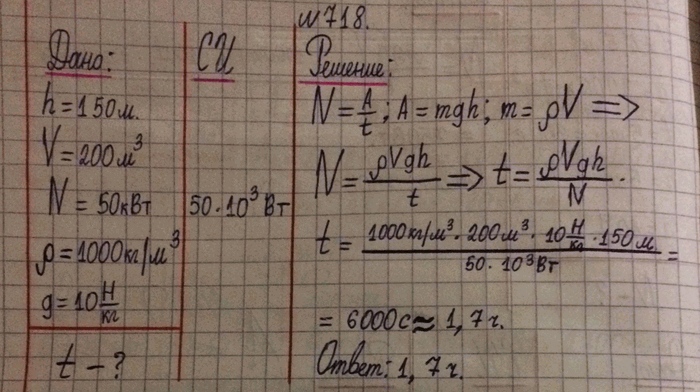 №718.
Дано:
h=150м.
V=200м³
N=50кВт
ρ=1000кг/м³
g=10Н/кг
t-?
СИ
50·10³Вт
Решение:
N=A/t; A=mgh; m=ρV=>
N=ρVgh/t => t=ρVgh/N.
t=1000кг/м³·200м³·10Н/кг·150м/50·10³Вт=
=6000с≈1,7ч.
Ответ: 1,7ч.